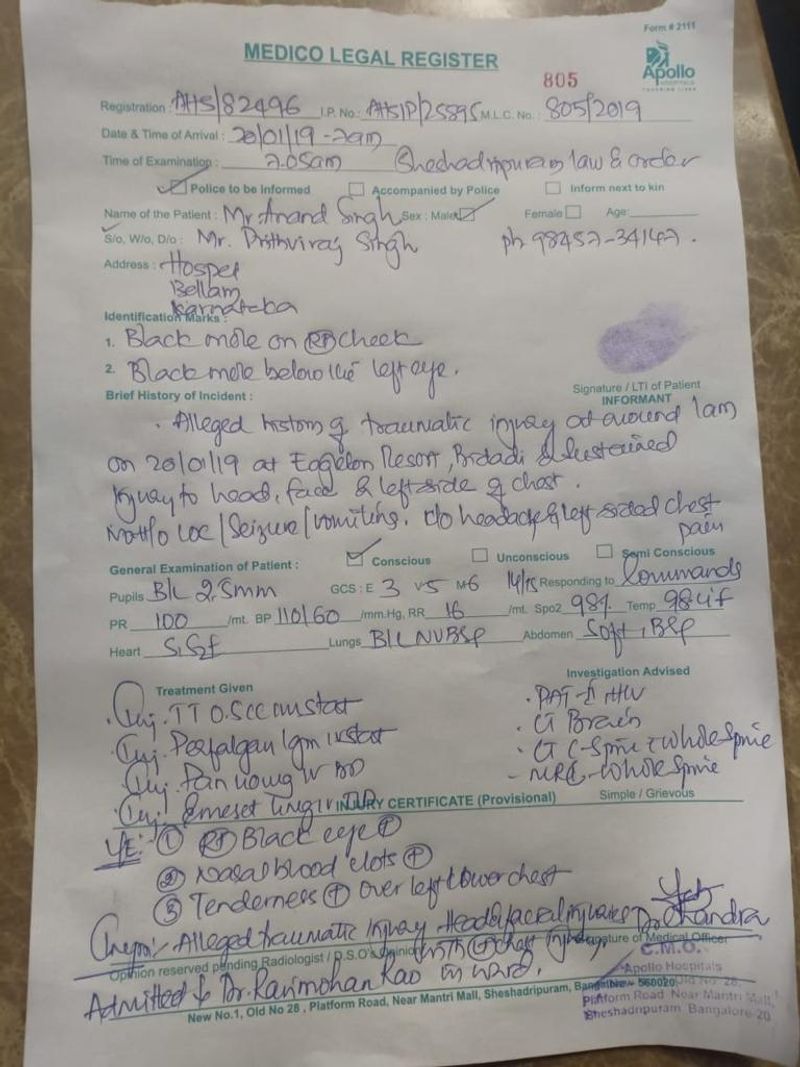 Form # 2111
MEDICO LEGAL REGISTER
Apollo
HOSPITALS
TOUCHING LIVES
805
Registration : AHS/82496 I.P. No.: AHSIP/25895 M.L.C. No. : 805/2019
Date & Time of Arrival : 20/01/19 - 2am
Time of Examination : 2.05am Sheshadripuram law & order
Police to be informed Accompanied by Police Inform next to kin
Name of the Patient : Mr. Anand Singh Sex : Male Female Age:
S/o, W/o, D/o : Mr. Prithviraj Singh ph 98457-34147.
Address : Hospet
Bellam
Karnataka
Identification Marks :
1. Black mole on Rt cheek
2. Black mole below the left eye.
Signature / LTI of Patient
INFORMANT
Brief History of Incident :
. Alleged history of traumatic injury at around 1am
on 20/01/19 at Eagleton Resort, Bidadi & sustained
injury to head, face & left side of chest.
No H/o LOC / Seizure / vomiting. c/o headache & left sided chest
pain
General Examination of Patient : Conscious Unconscious Semi Conscious
Pupils B/L 2.5mm GCS : E 3 V5 M6 14/15 Responding to Commands
PR 100 /mt. BP 110/60 /mm.Hg, RR 16 /mt. Spo2 98% Temp 98.4°F
Heart S1S2+ Lungs B/L NVBS+ Abdomen Soft, BS+
Treatment Given Investigation Advised
. Inj. TT 0.5cc im stat
. Inj. Perfalgan 1gm iv stat
. Inj. Pan 40mg iv BD
. Inj. Emeset
. CT Brain
. CT C-Spine whole Spine
- MRI - whole Spine
INJURY CERTIFICATE (Provisional) Simple / Grievous
L/E:- ① Rt Black eye +
② Nasal blood clots +
③ Tenderness + over left lower chest
Alleged traumatic injury Head & facial injuries Dr. Chandra
with chest injury.
Signature of Medical Officer
Opinion reserved pending Radiologist / D.S.O's Opinion
C.M.O.
Apollo Hospitals
Admitted Dr. Ravimohan Rao in ward.
New No.1, Old No 28 , Platform Road, Near Mantri Mall, Sheshadripuram, Bangalore - 560020
Old No. 28,
Platform Road, Near Mantri Mall,
Sheshadripuram, Bangalore-20